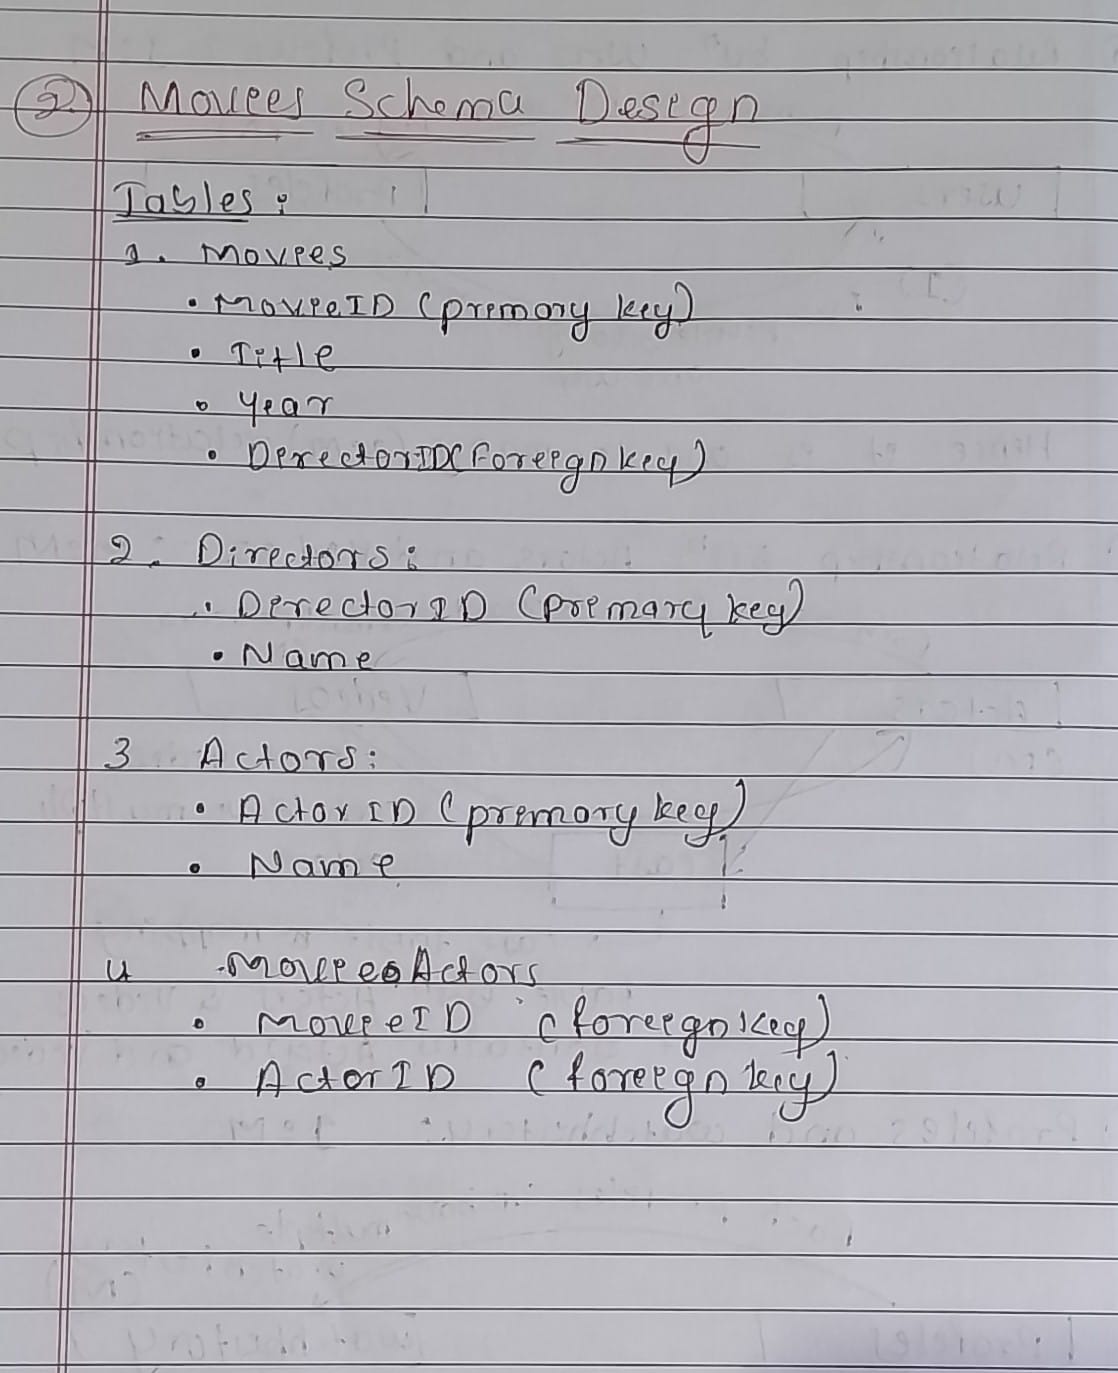 2) Movies Schema Design
Tables:
1. Movies
• MovieID (primary key)
• Title
• Year
• DirectorID (Foreign key)
2. Directors:
• DirectorID (primary key)
• Name
3 Actors:
• ActorID (primary key)
• Name
4 MoviesActors
• MovieID (foreign key)
• ActorID (foreign key)